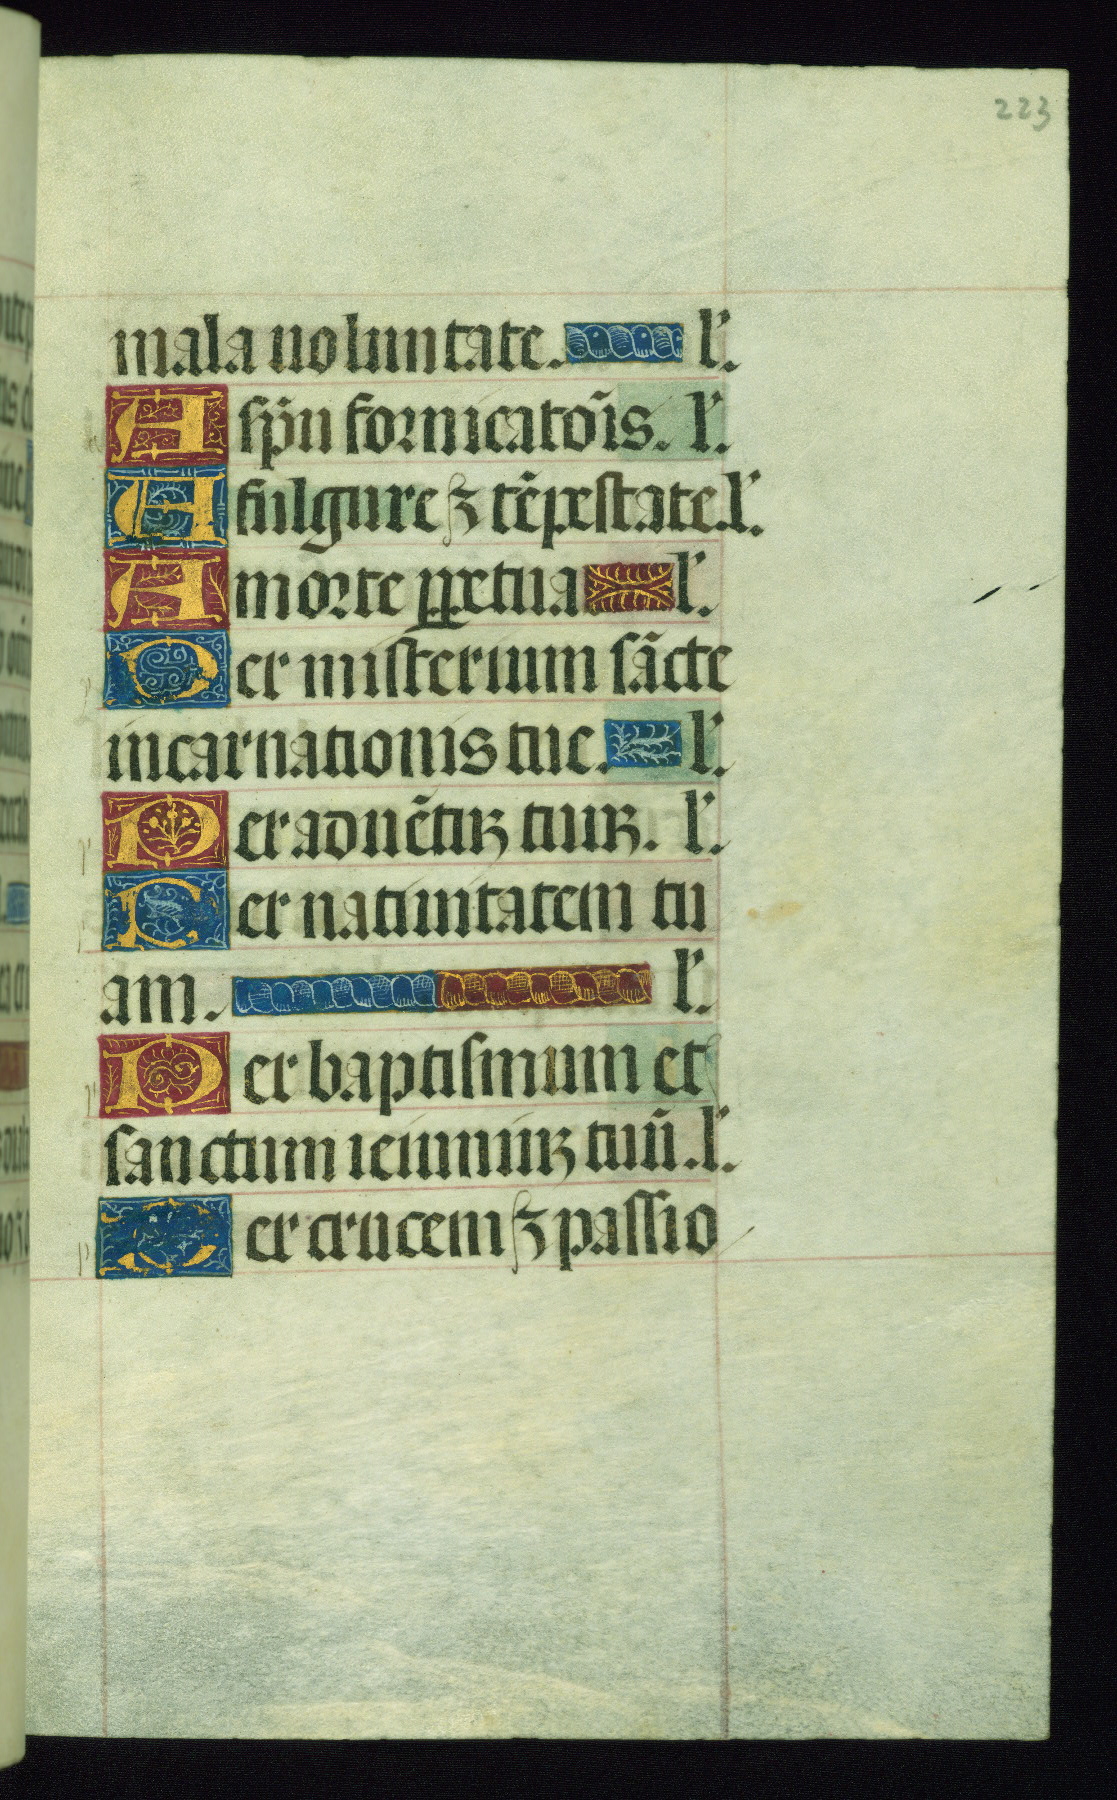 223
mala uoluntate. l'.
A sp̄u fornicatōis. l'.
A fulgure ⁊ tēpestate l'.
A morte ꝑpetua l'.
P er misterium sācte
incarnationis tue. l'.
P er aduētuꝫ tuuꝫ. l'.
P er natiuitatem tu
am. l'.
P er baptismum et
sanctum ieiuniuꝫ tuū. l'.
P er crucem ⁊ passio